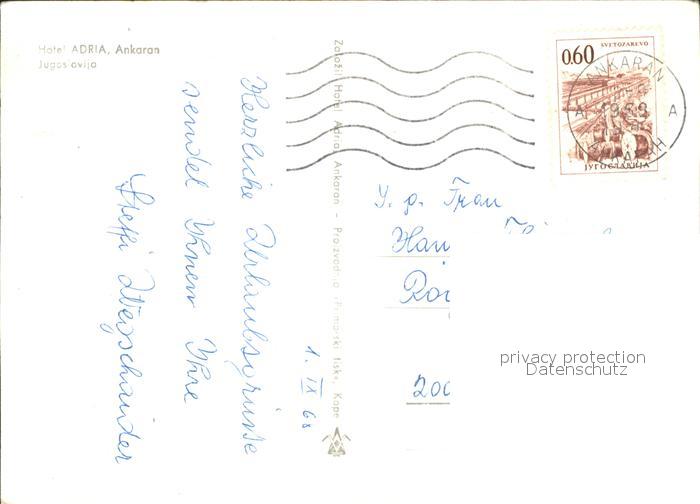 Hotel ADRIA, Ankaran
Jugoslavija
Herzliche Urlaubsgrüsse
sendet Ihnen Ihre
Steffi
1. IX 68
Založil Hotel Adria Ankaran – Proizvodnja »Primorski tisk«, Koper
0.60
SVETOZAREVO
ЈУГОСЛАВИЈА
ANKARAN
A
A
Frau
200
privacy protection
Datenschutz